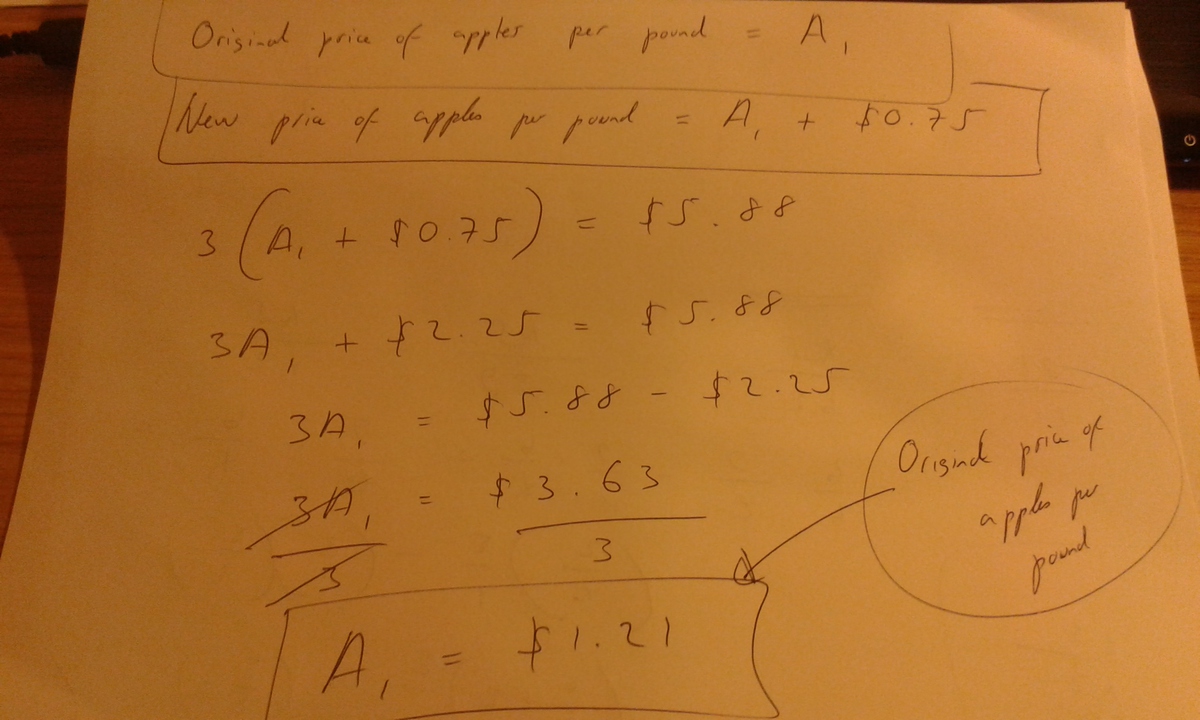 Original price of apples per pound = A₁
New price of apples per pound = A₁ + $0.75
3(A₁ + $0.75) = $5.88
3A₁ + $2.25 = $5.88
3A₁ = $5.88 - $2.25
3A₁ = $3.63
3 3
A₁ = $1.21
Original price of
apples per
pound